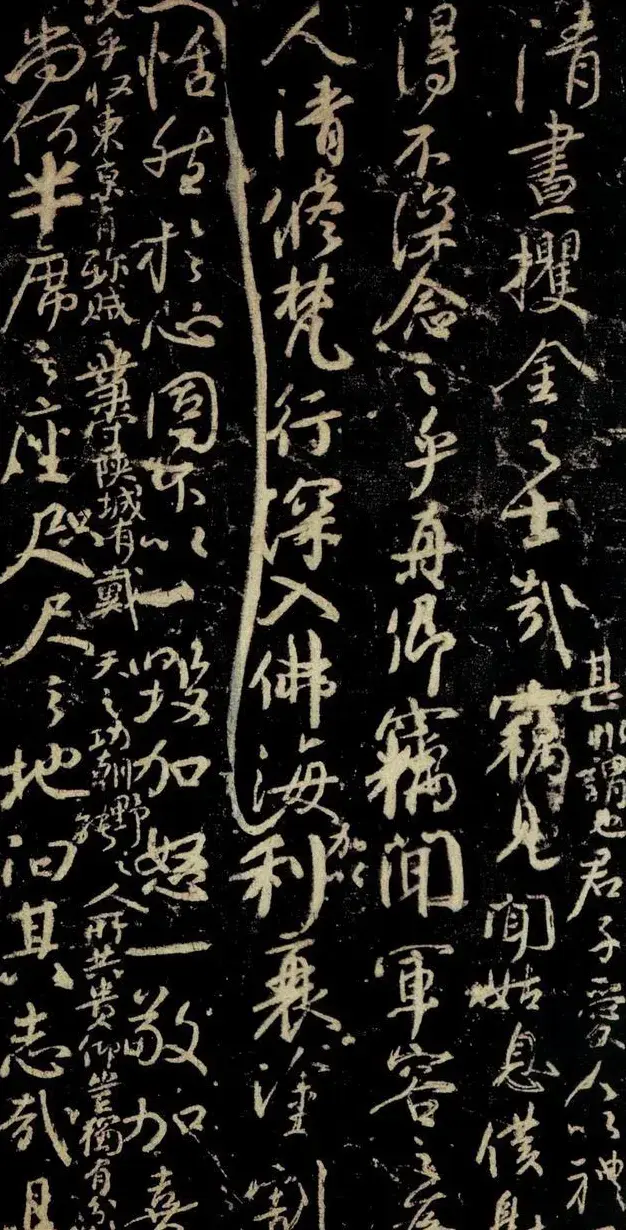 清晝攫金之士哉竊見聞姑息僕射
甚非謂也君子愛人以禮
得不深念之乎真卿竊聞軍容之爲
人清修梵行深入佛海加以利衰塗割
恬然於心固不以一毀加怒一敬加喜
況乎收東京有殄賊之業守陝城有戴天之功朝野之人所共貴仰豈獨有分
尚何半席之座咫尺之地汩其志哉且